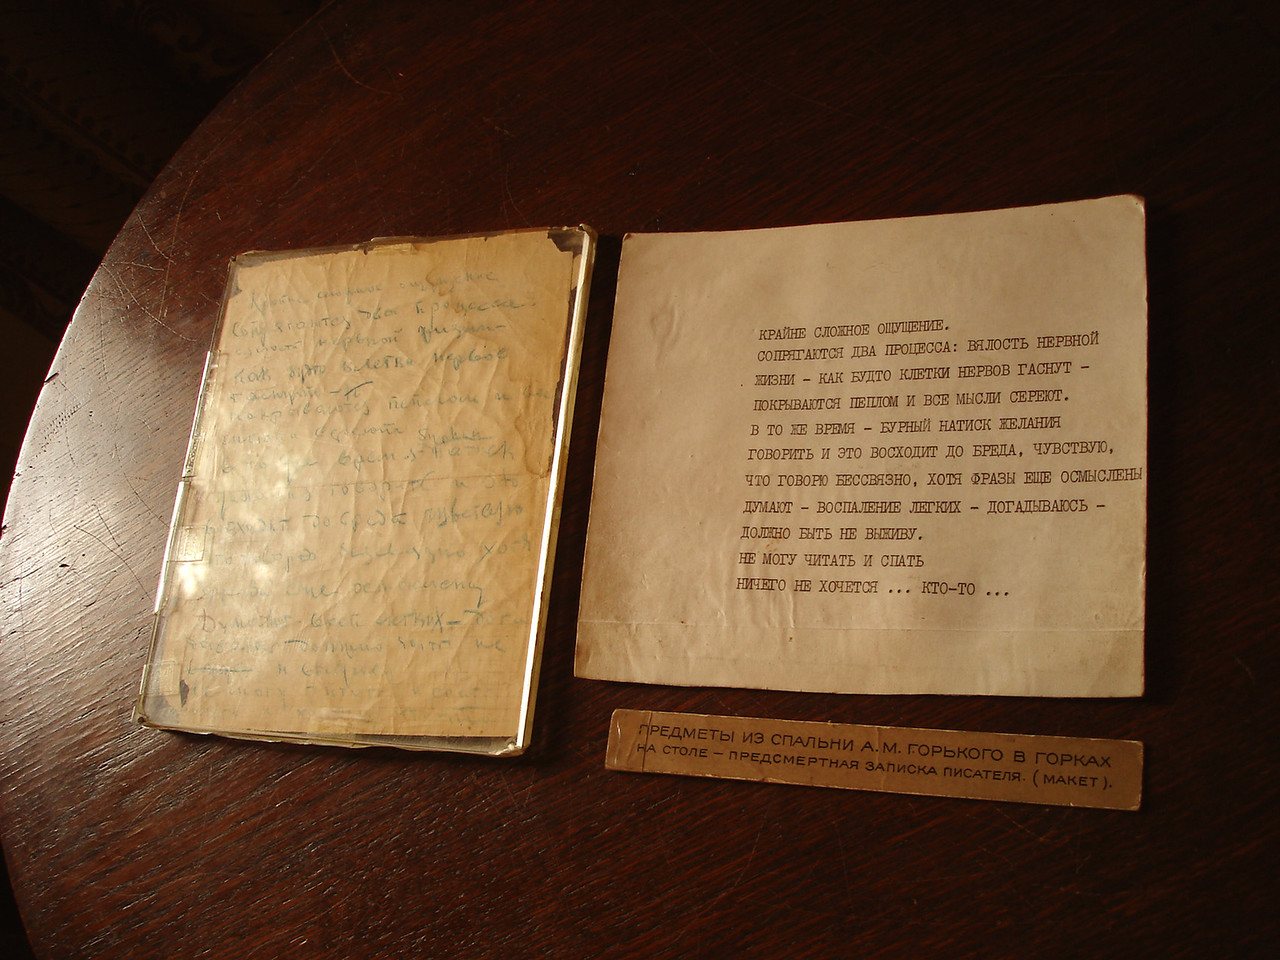 Крайне сложное ощущение
Сопрягаются два процесса:
вялость нервной жизни –
как будто клетки нервов
гаснут –
покрываются пеплом и все
мысли сереют
в то же время – натиск
желания говорить и это
восходит до бреда чувствую
что говорю бессвязно хотя
фразы еще осмыслены
Думают – восп легких – дога
должно быть не
выживу.
Не могу читать и спать
КРАЙНЕ СЛОЖНОЕ ОЩУЩЕНИЕ.
СОПРЯГАЮТСЯ ДВА ПРОЦЕССА: ВЯЛОСТЬ НЕРВНОЙ
ЖИЗНИ – КАК БУДТО КЛЕТКИ НЕРВОВ ГАСНУТ –
ПОКРЫВАЮТСЯ ПЕПЛОМ И ВСЕ МЫСЛИ СЕРЕЮТ.
В ТО ЖЕ ВРЕМЯ – БУРНЫЙ НАТИСК ЖЕЛАНИЯ
ГОВОРИТЬ И ЭТО ВОСХОДИТ ДО БРЕДА, ЧУВСТВУЮ,
ЧТО ГОВОРЮ БЕССВЯЗНО, ХОТЯ ФРАЗЫ ЕЩЕ ОСМЫСЛЕНЫ
ДУМАЮТ – ВОСПАЛЕНИЕ ЛЕГКИХ – ДОГАДЫВАЮСЬ –
ДОЛЖНО БЫТЬ НЕ ВЫЖИВУ.
НЕ МОГУ ЧИТАТЬ И СПАТЬ
НИЧЕГО НЕ ХОЧЕТСЯ ... КТО-ТО ...
ПРЕДМЕТЫ ИЗ СПАЛЬНИ А.М. ГОРЬКОГО В ГОРКАХ
НА СТОЛЕ – ПРЕДСМЕРТНАЯ ЗАПИСКА ПИСАТЕЛЯ. (МАКЕТ).